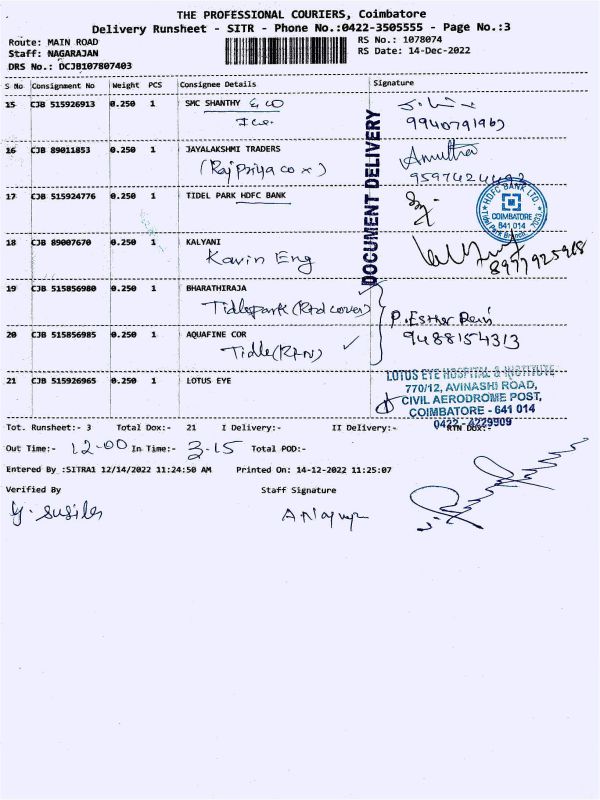 THE PROFESSIONAL COURIERS, Coimbatore
Delivery Runsheet - SITR - Phone No.:0422-3505555 - Page No.:3
Route: MAIN ROAD
RS No.: 1078074
Staff: NAGARAJAN
RS Date: 14-Dec-2022
DRS No.: DCJB107807403
S No Consignment No Weight PCS Consignee Details Signature
15 CJB 515926913 0.250 1 SMC SHANTHY & CO
9940791967
16 CJB 89011853 0.250 1 JAYALAKSHMI TRADERS
Amutha
(Raj Priya co x)
17 CJB 515924776 0.250 1 TIDEL PARK HDFC BANK
HDFC BANK LTD.
COIMBATORE
641 014
18 CJB 89007670 0.250 1 KALYANI
Kavin Eng
8977925968
DOCUMENT DELIVERY
19 CJB 515856980 0.250 1 BHARATHIRAJA
Tidle park (Rtd cover)
P. Esther Rani
20 CJB 515856985 0.250 1 AQUAFINE COR
9488154313
Tidle (RTN)
21 CJB 515926965 0.250 1 LOTUS EYE
LOTUS EYE HOSPITAL & INSTITUTE
770/12, AVINASHI ROAD,
CIVIL AERODROME POST,
COIMBATORE - 641 014
0422 - 4229909
Tot. Runsheet:- 3 Total Dox:- 21 I Delivery:- II Delivery:- RTN Dox:-
Out Time:- 12-00 In Time:- 3-15 Total POD:-
Entered By :SITRA1 12/14/2022 11:24:50 AM Printed On: 14-12-2022 11:25:07
Verified By Staff Signature